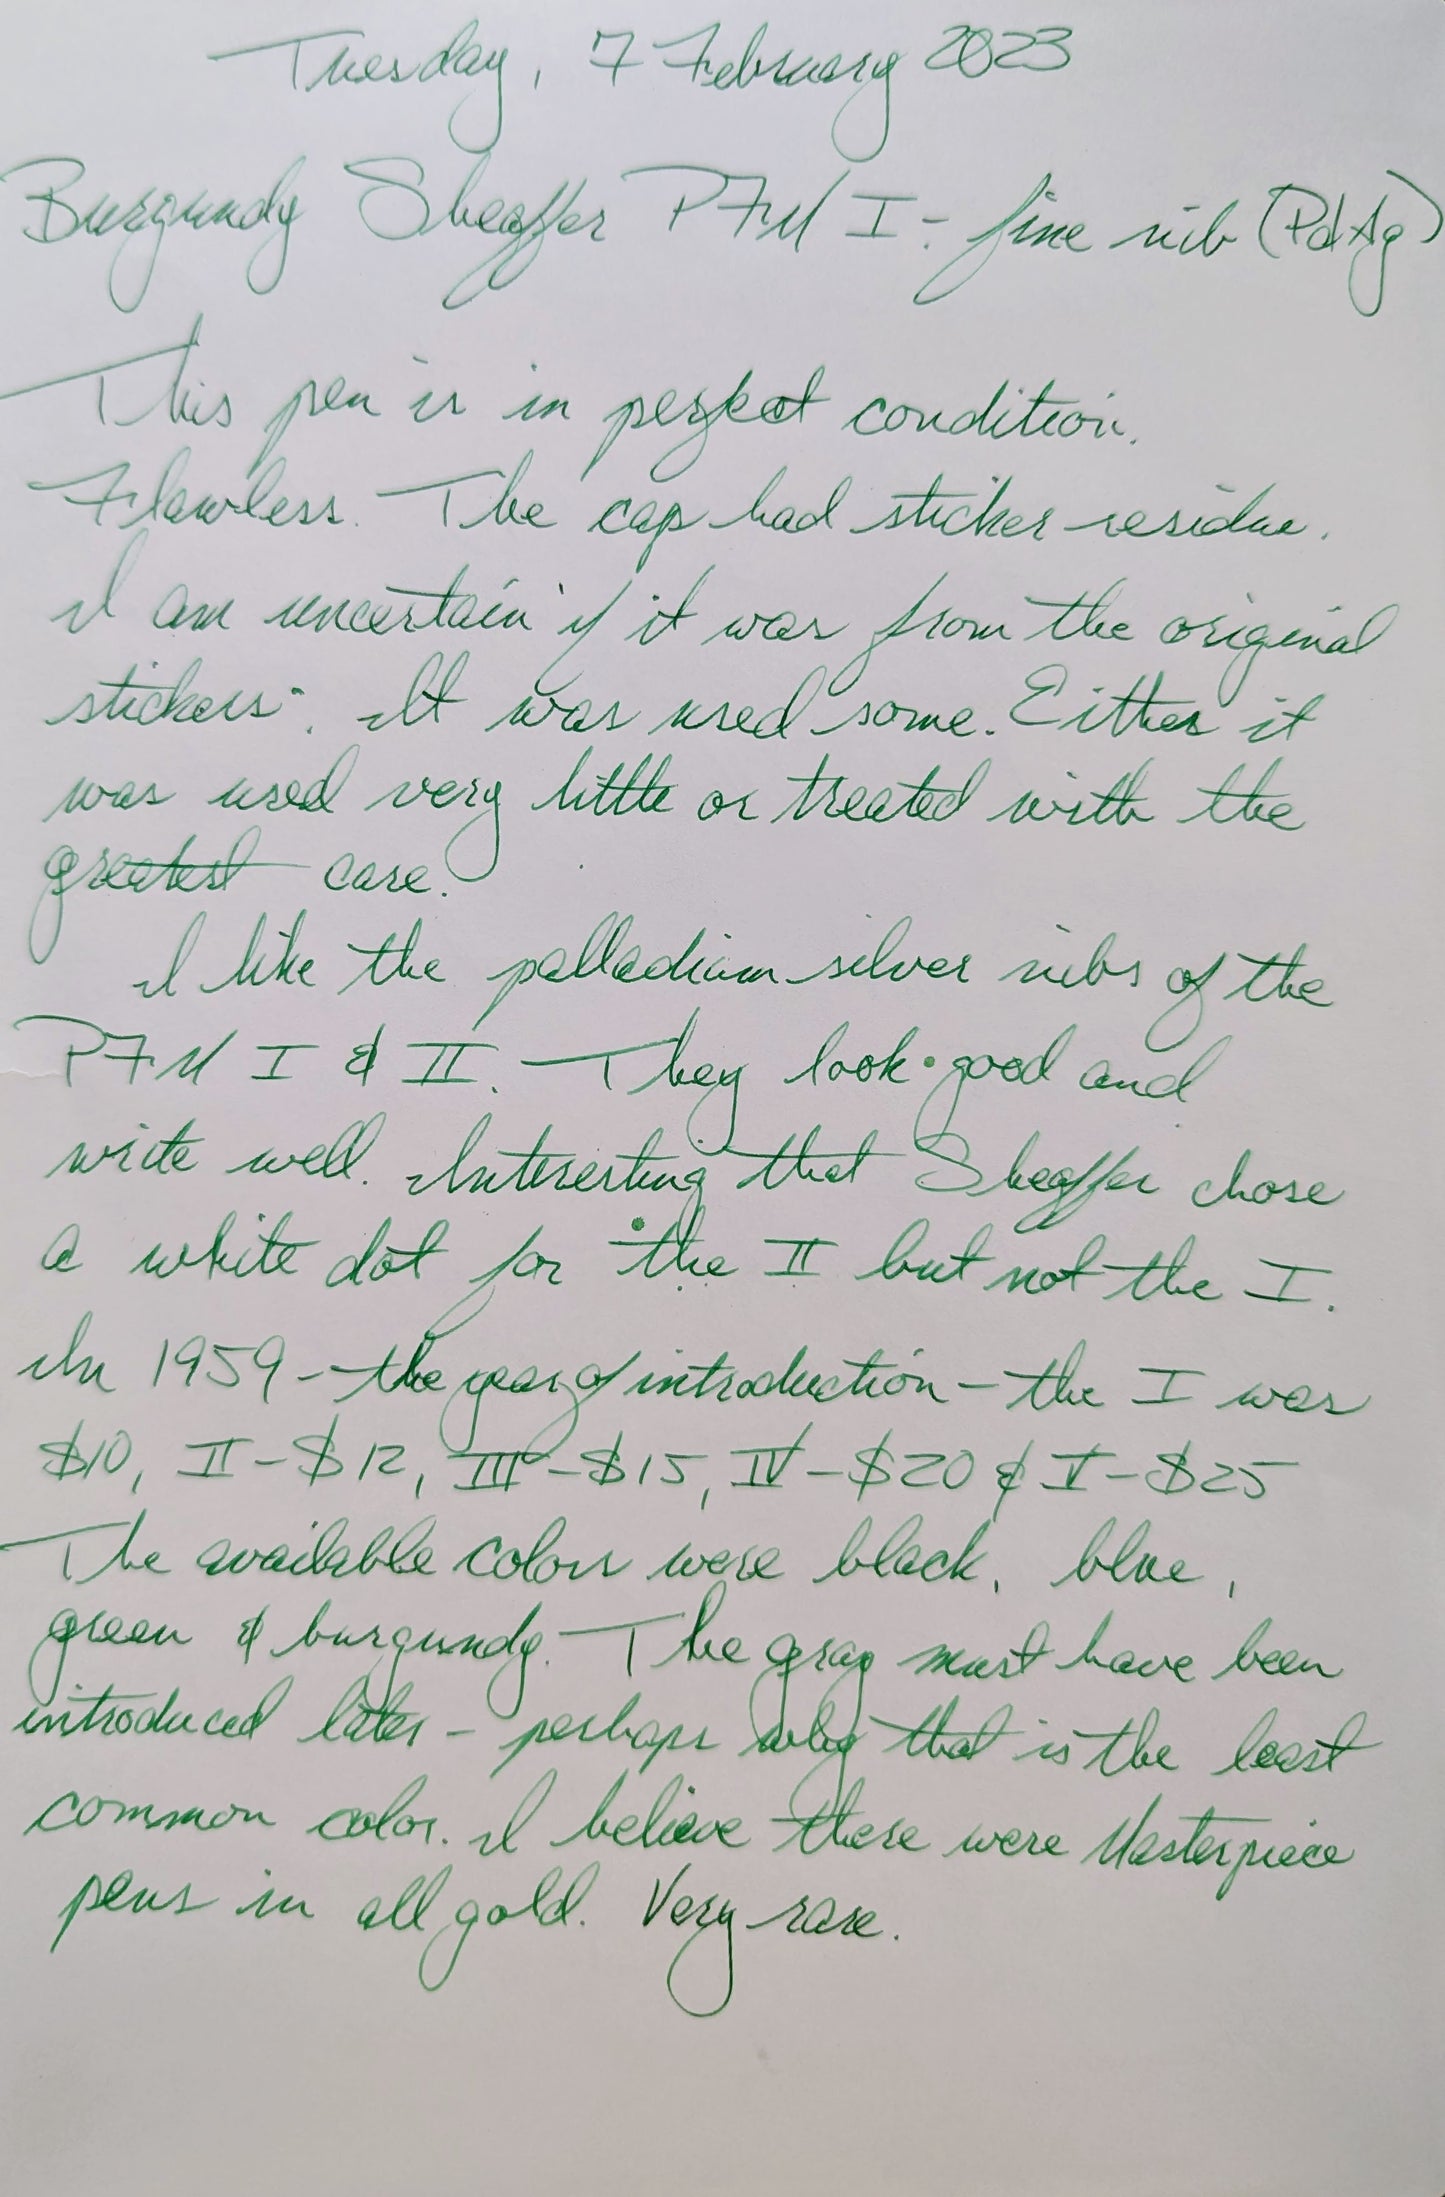 Tuesday, 7 February 2023
Burgundy Sheaffer PFM I - fine nib (PdAg)
This pen is in perfect condition.
Flawless. The cap had sticker residue.
I am uncertain if it was from the original
stickers. It was used some. Either it
was used very little or treated with the
greatest care.
I like the palladium silver nibs of the
PFM I & II. They look good and
write well. Interesting that Sheaffer chose
a white dot for the II but not the I.
In 1959 - the year of introduction - the I was
$10, II - $12, III - $15, IV - $20 & V - $25
The available colors were black, blue,
green & burgundy. The gray must have been
introduced later - perhaps why that is the least
common color. I believe there were Masterpiece
pens in all gold. Very rare.